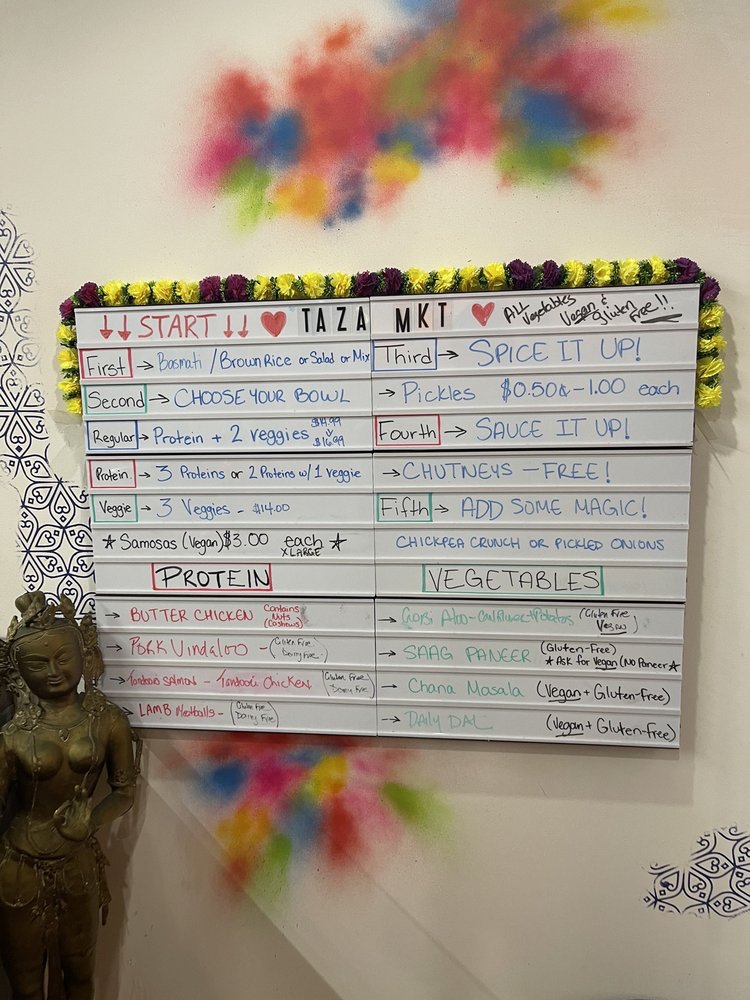 ↓↓ START ↓↓ ♥ TAZA MKT ♥ ALL Vegetables Vegan & Gluten Free!!
First → Basmati / Brown Rice or Salad or Mix
Second → CHOOSE YOUR BOWL
Regular → Protein + 2 veggies $14.99 $16.99
Protein → 3 Proteins or 2 Proteins w/ 1 veggie
Veggie → 3 Veggies - $14.00
★ Samosas (Vegan) $3.00 each ★
XLARGE
PROTEIN
→ BUTTER CHICKEN (Contains Nuts (Cashews))
→ Pork Vindaloo - (Gluten Free Dairy Free)
→ Tandoori Salmon - Tandoori Chicken (Gluten Free Dairy Free)
→ LAMB Meatballs - (Gluten Free Dairy Free)
Third → SPICE IT UP!
→ Pickles $0.50¢ - 1.00 each
Fourth → SAUCE IT UP!
→ CHUTNEYS - FREE!
Fifth → ADD SOME MAGIC!
CHICKPEA CRUNCH OR PICKLED ONIONS
VEGETABLES
→ Gobi Aloo - Cauliflower + Potatoes (Gluten Free Vegan)
→ SAAG PANEER (Gluten-Free)
★ Ask for Vegan (No Paneer ★
→ Chana Masala (Vegan + Gluten-free)
→ DAILY DAL (Vegan + Gluten-free)